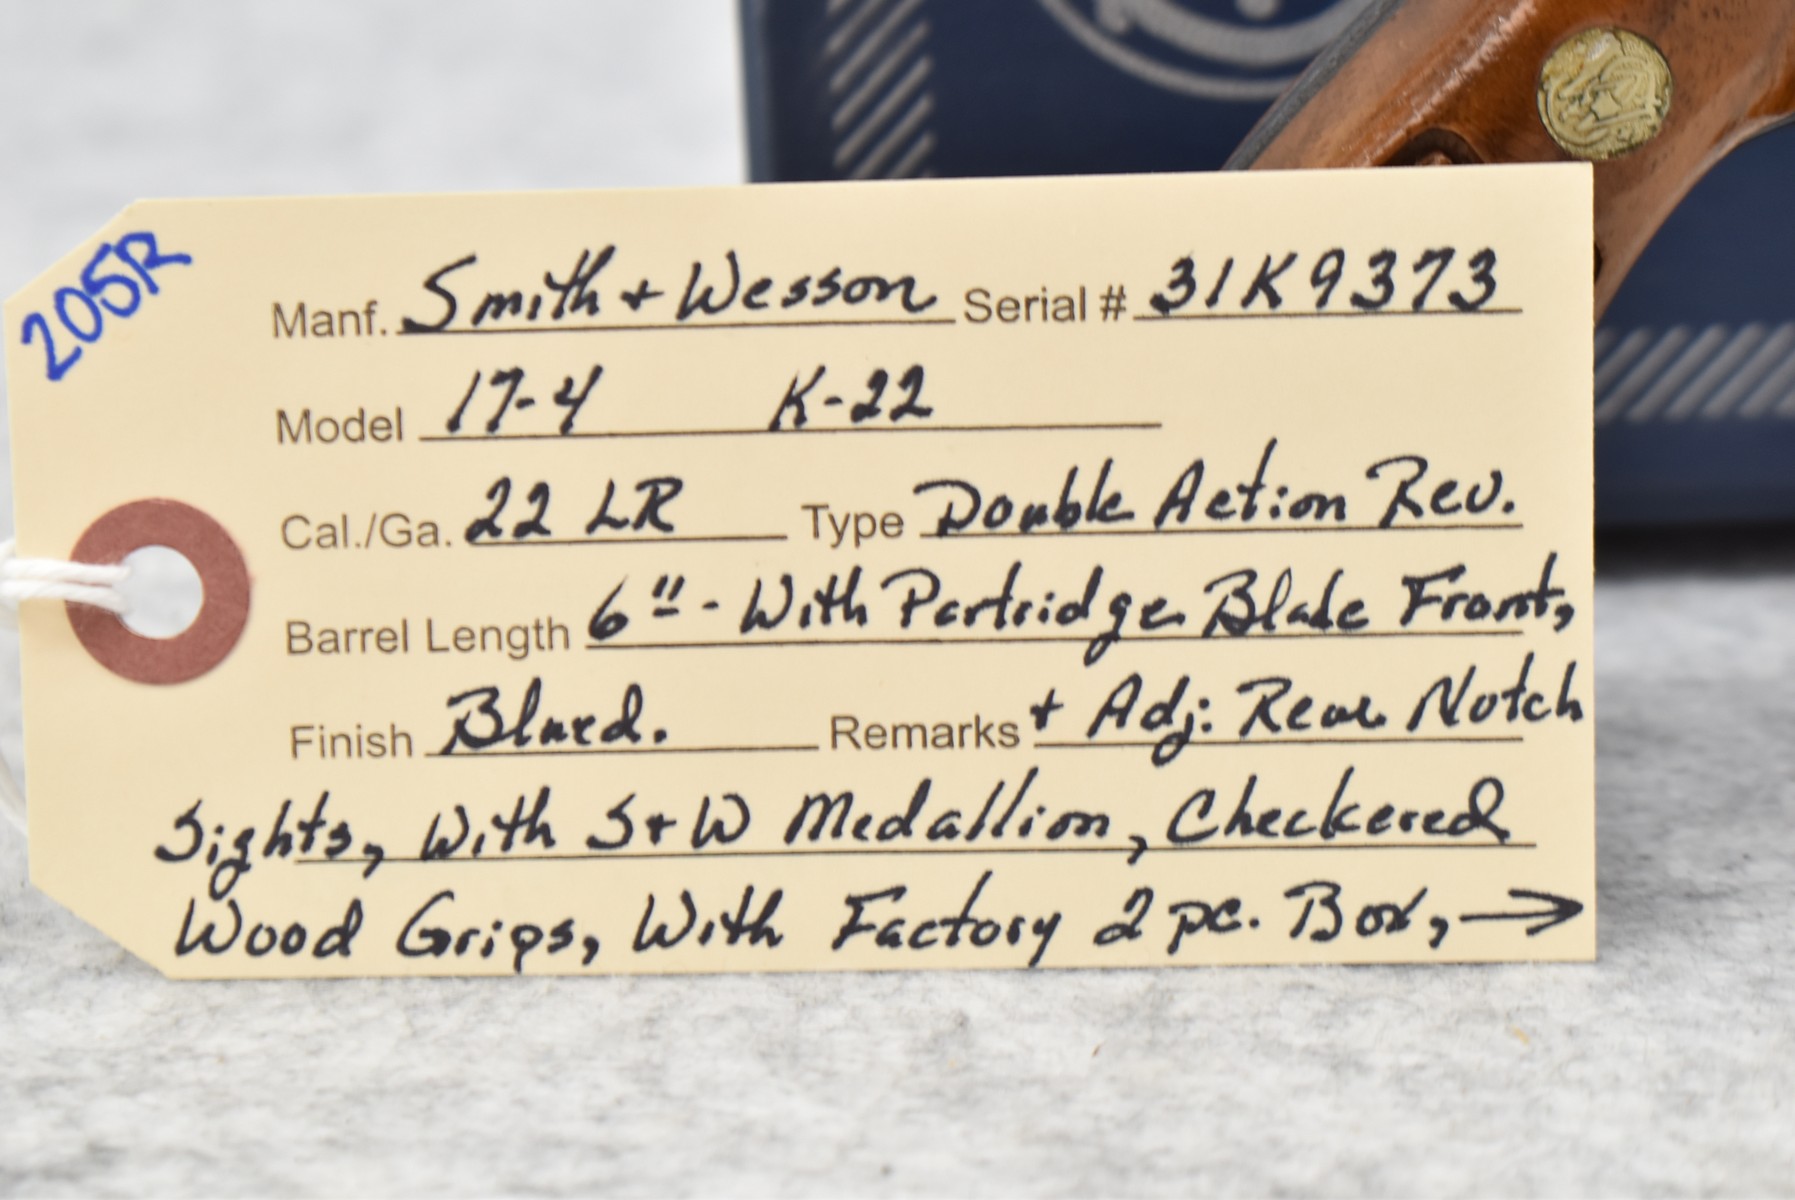 205R
Manf. Smith + Wesson Serial # 31K9373
Model 17-4 K-22
Cal./Ga. 22 LR Type Double Action Rev.
Barrel Length 6" - With Partridge Blade Front,
Finish Blued. Remarks + Adj: Rear Notch
Sights, With S+W Medallion, Checkered
Wood Grips, With Factory 2 pc. Box, →